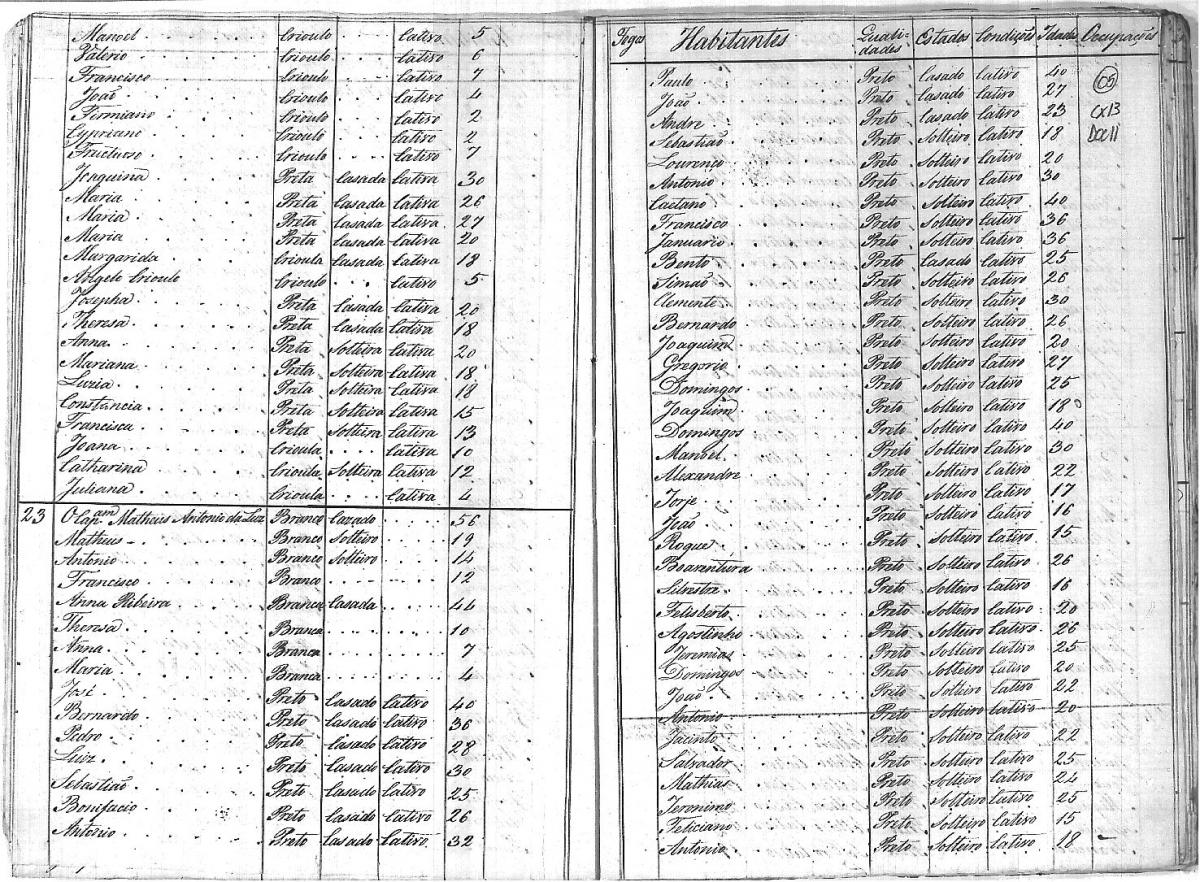 Manoel Crioulo Cativo 5
Valerio Crioulo Cativo 6
Francisco Crioulo Cativo 7
João Crioulo Cativo 4
Firmiano Crioulo Cativo 2
Cypriano Crioulo Cativo 2
Fructuoso Crioulo Cativo 7
Joaquina Preta Casada Cativa 30
Maria Preta Casada Cativa 26
Maria Preta Casada Cativa 27
Maria Preta Casada Cativa 20
Margarida Crioula Casada Cativa 18
Angelo Crioulo Crioulo Cativo 5
Josepha Preta Casada Cativa 20
Theresa Preta Casada Cativa 18
Anna Preta Solteira Cativa 20
Mariana Preta Solteira Cativa 18
Luzia Preta Solteira Cativa 18
Constancia Preta Solteira Cativa 15
Francisca Preta Solteira Cativa 13
Joana Crioula Cativa 10
Catharina Crioula Solteira Cativa 12
Juliana Crioula Cativa 4
23 O Cap.am Matheus Antonio da Luz Branco Cazado 56
Matheus Branco Solteiro 19
Antonio Branco Solteiro 14
Francisco Branco 12
Anna Ribeira Branca Casada 44
Theresa Branca 10
Anna Branca 7
Maria Branca 4
José Preto Casado Cativo 40
Bernardo Preto Casado Cativo 36
Pedro Preto Casado Cativo 28
Luiz Preto Casado Cativo 30
Sebastião Preto Casado Cativo 25
Bonifacio Preto Casado Cativo 26
Antonio Preto Casado Cativo 32
Fogos Habitantes Qualidades Estados Condições Idades Occupações
Paulo Preto Casado Cativo 40
João Preto Casado Cativo 27
Andre Preto Casado Cativo 23
Sebastião Preto Solteiro Cativo 18
Lourenço Preto Solteiro Cativo 20
Antonio Preto Solteiro Cativo 30
Caetano Preto Solteiro Cativo 40
Francisco Preto Solteiro Cativo 36
Januario Preto Solteiro Cativo 36
Bento Preto Casado Cativo 25
Simão Preto Solteiro Cativo 26
Clemente Preto Solteiro Cativo 30
Bernardo Preto Solteiro Cativo 26
Joaquim Preto Solteiro Cativo 20
Gregorio Preto Solteiro Cativo 27
Domingos Preto Solteiro Cativo 25
Joaquim Preto Solteiro Cativo 18
Domingos Preto Solteiro Cativo 40
Manoel Preto Solteiro Cativo 30
Alexandre Preto Solteiro Cativo 22
Jorje Preto Solteiro Cativo 17
João Preto Solteiro Cativo 16
Roque Preto Solteiro Cativo 15
Boaventura Preto Solteiro Cativo 26
Silvestre Preto Solteiro Cativo 16
Felisberto Preto Solteiro Cativo 20
Agostinho Preto Solteiro Cativo 26
Jeremias Preto Solteiro Cativo 25
Domingos Preto Solteiro Cativo 20
João Preto Solteiro Cativo 22
Antonio Preto Solteiro Cativo 20
Jacinto Preto Solteiro Cativo 22
Salvador Preto Solteiro Cativo 25
Mathias Preto Solteiro Cativo 24
Jeronimo Preto Solteiro Cativo 25
Feliciano Preto Solteiro Cativo 15
Antonio Preto Solteiro Cativo 18
05
CX13
Doc11